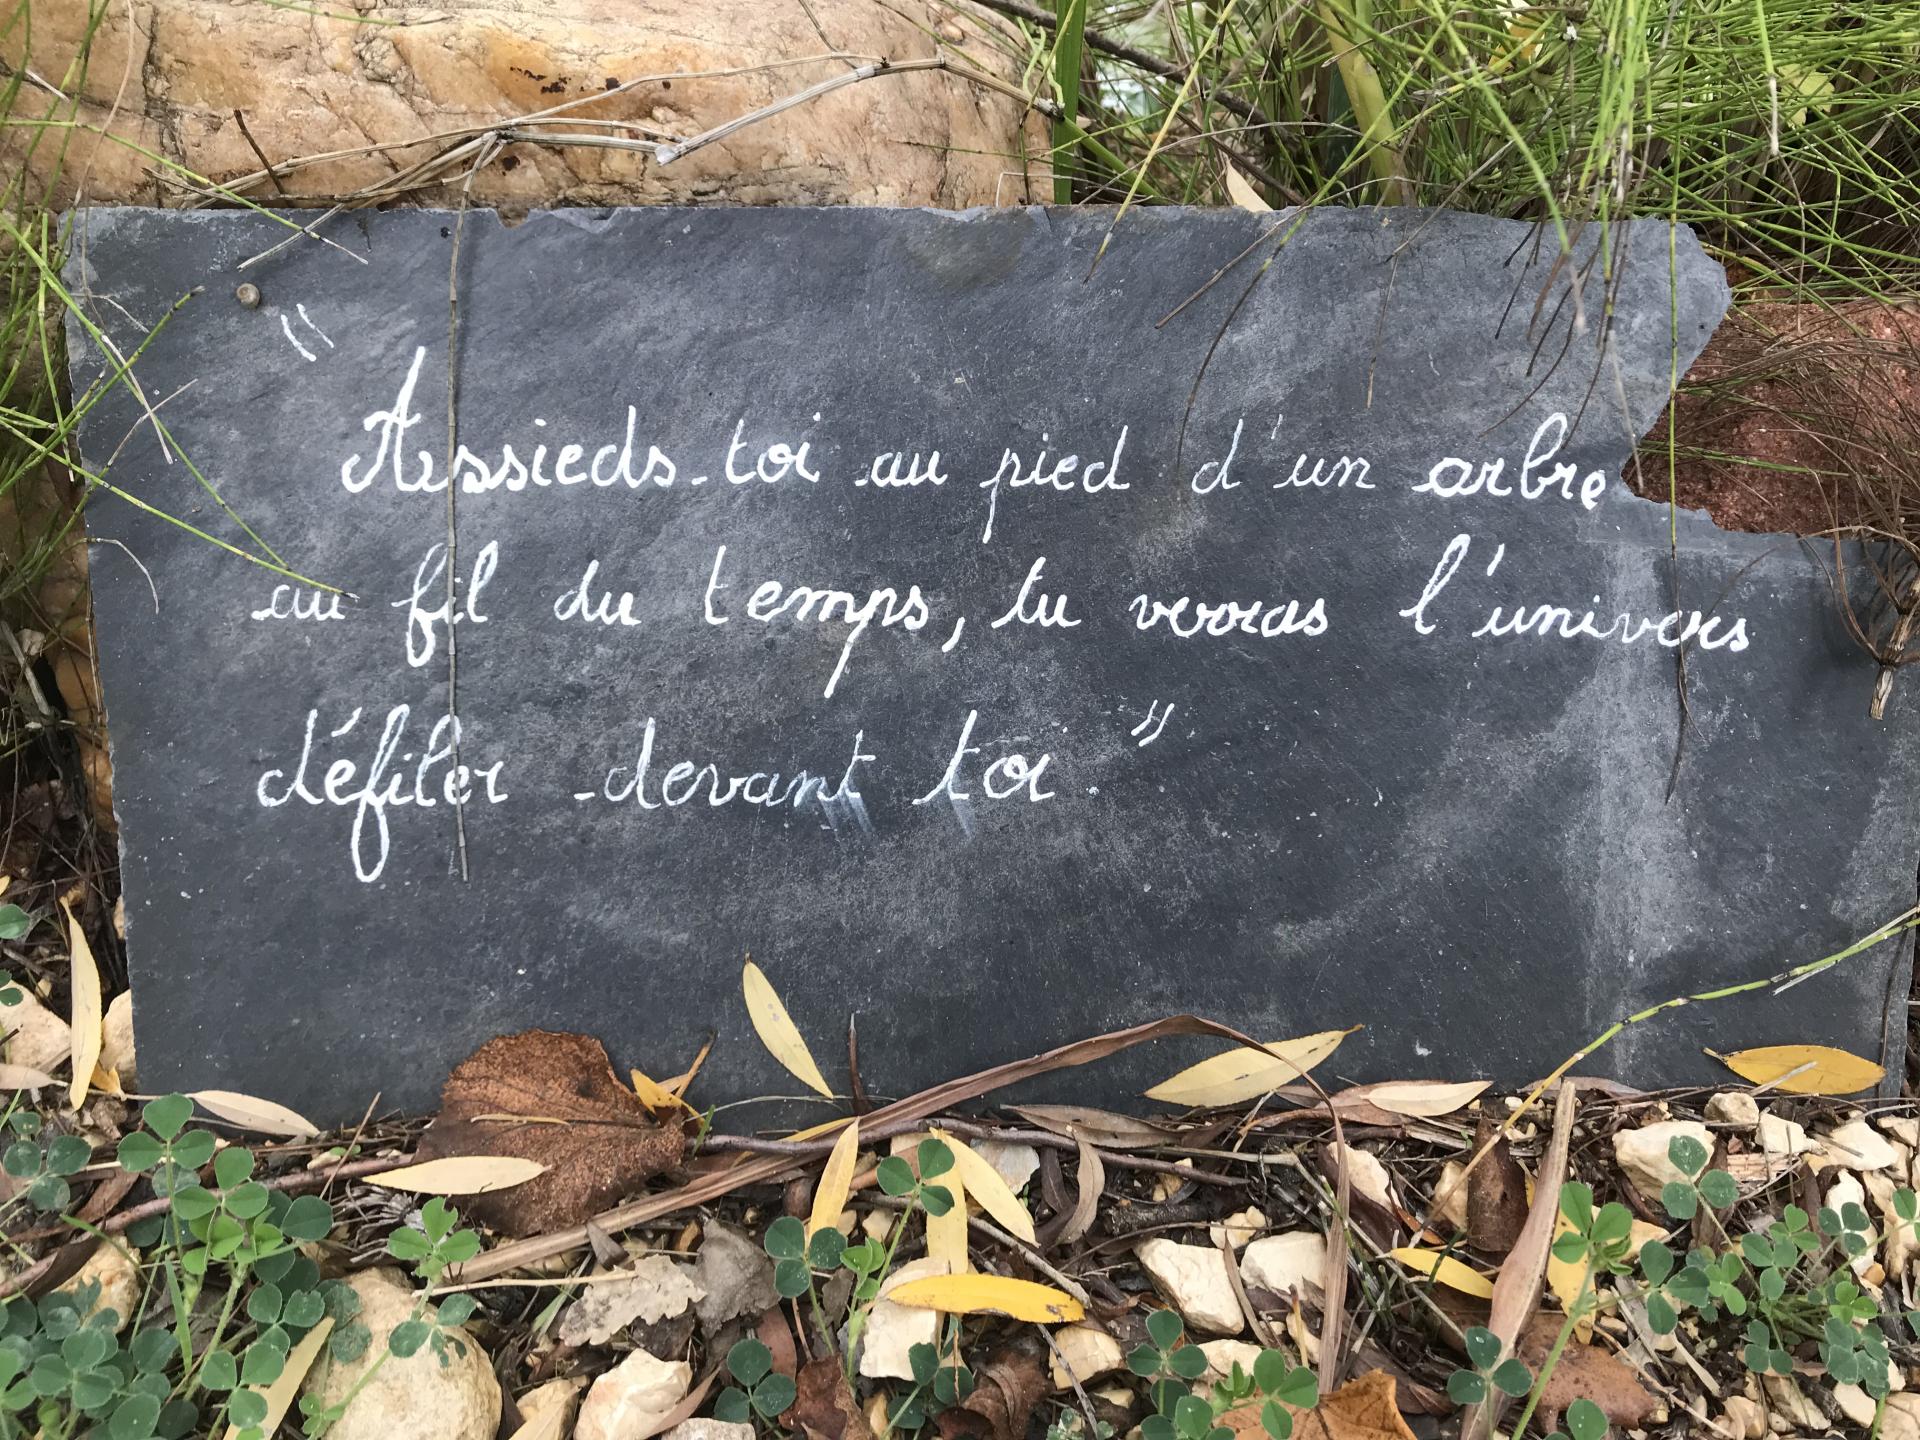 "Assieds-toi au pied d'un arbre
au fil du temps, tu verras l'univers
défiler devant toi."